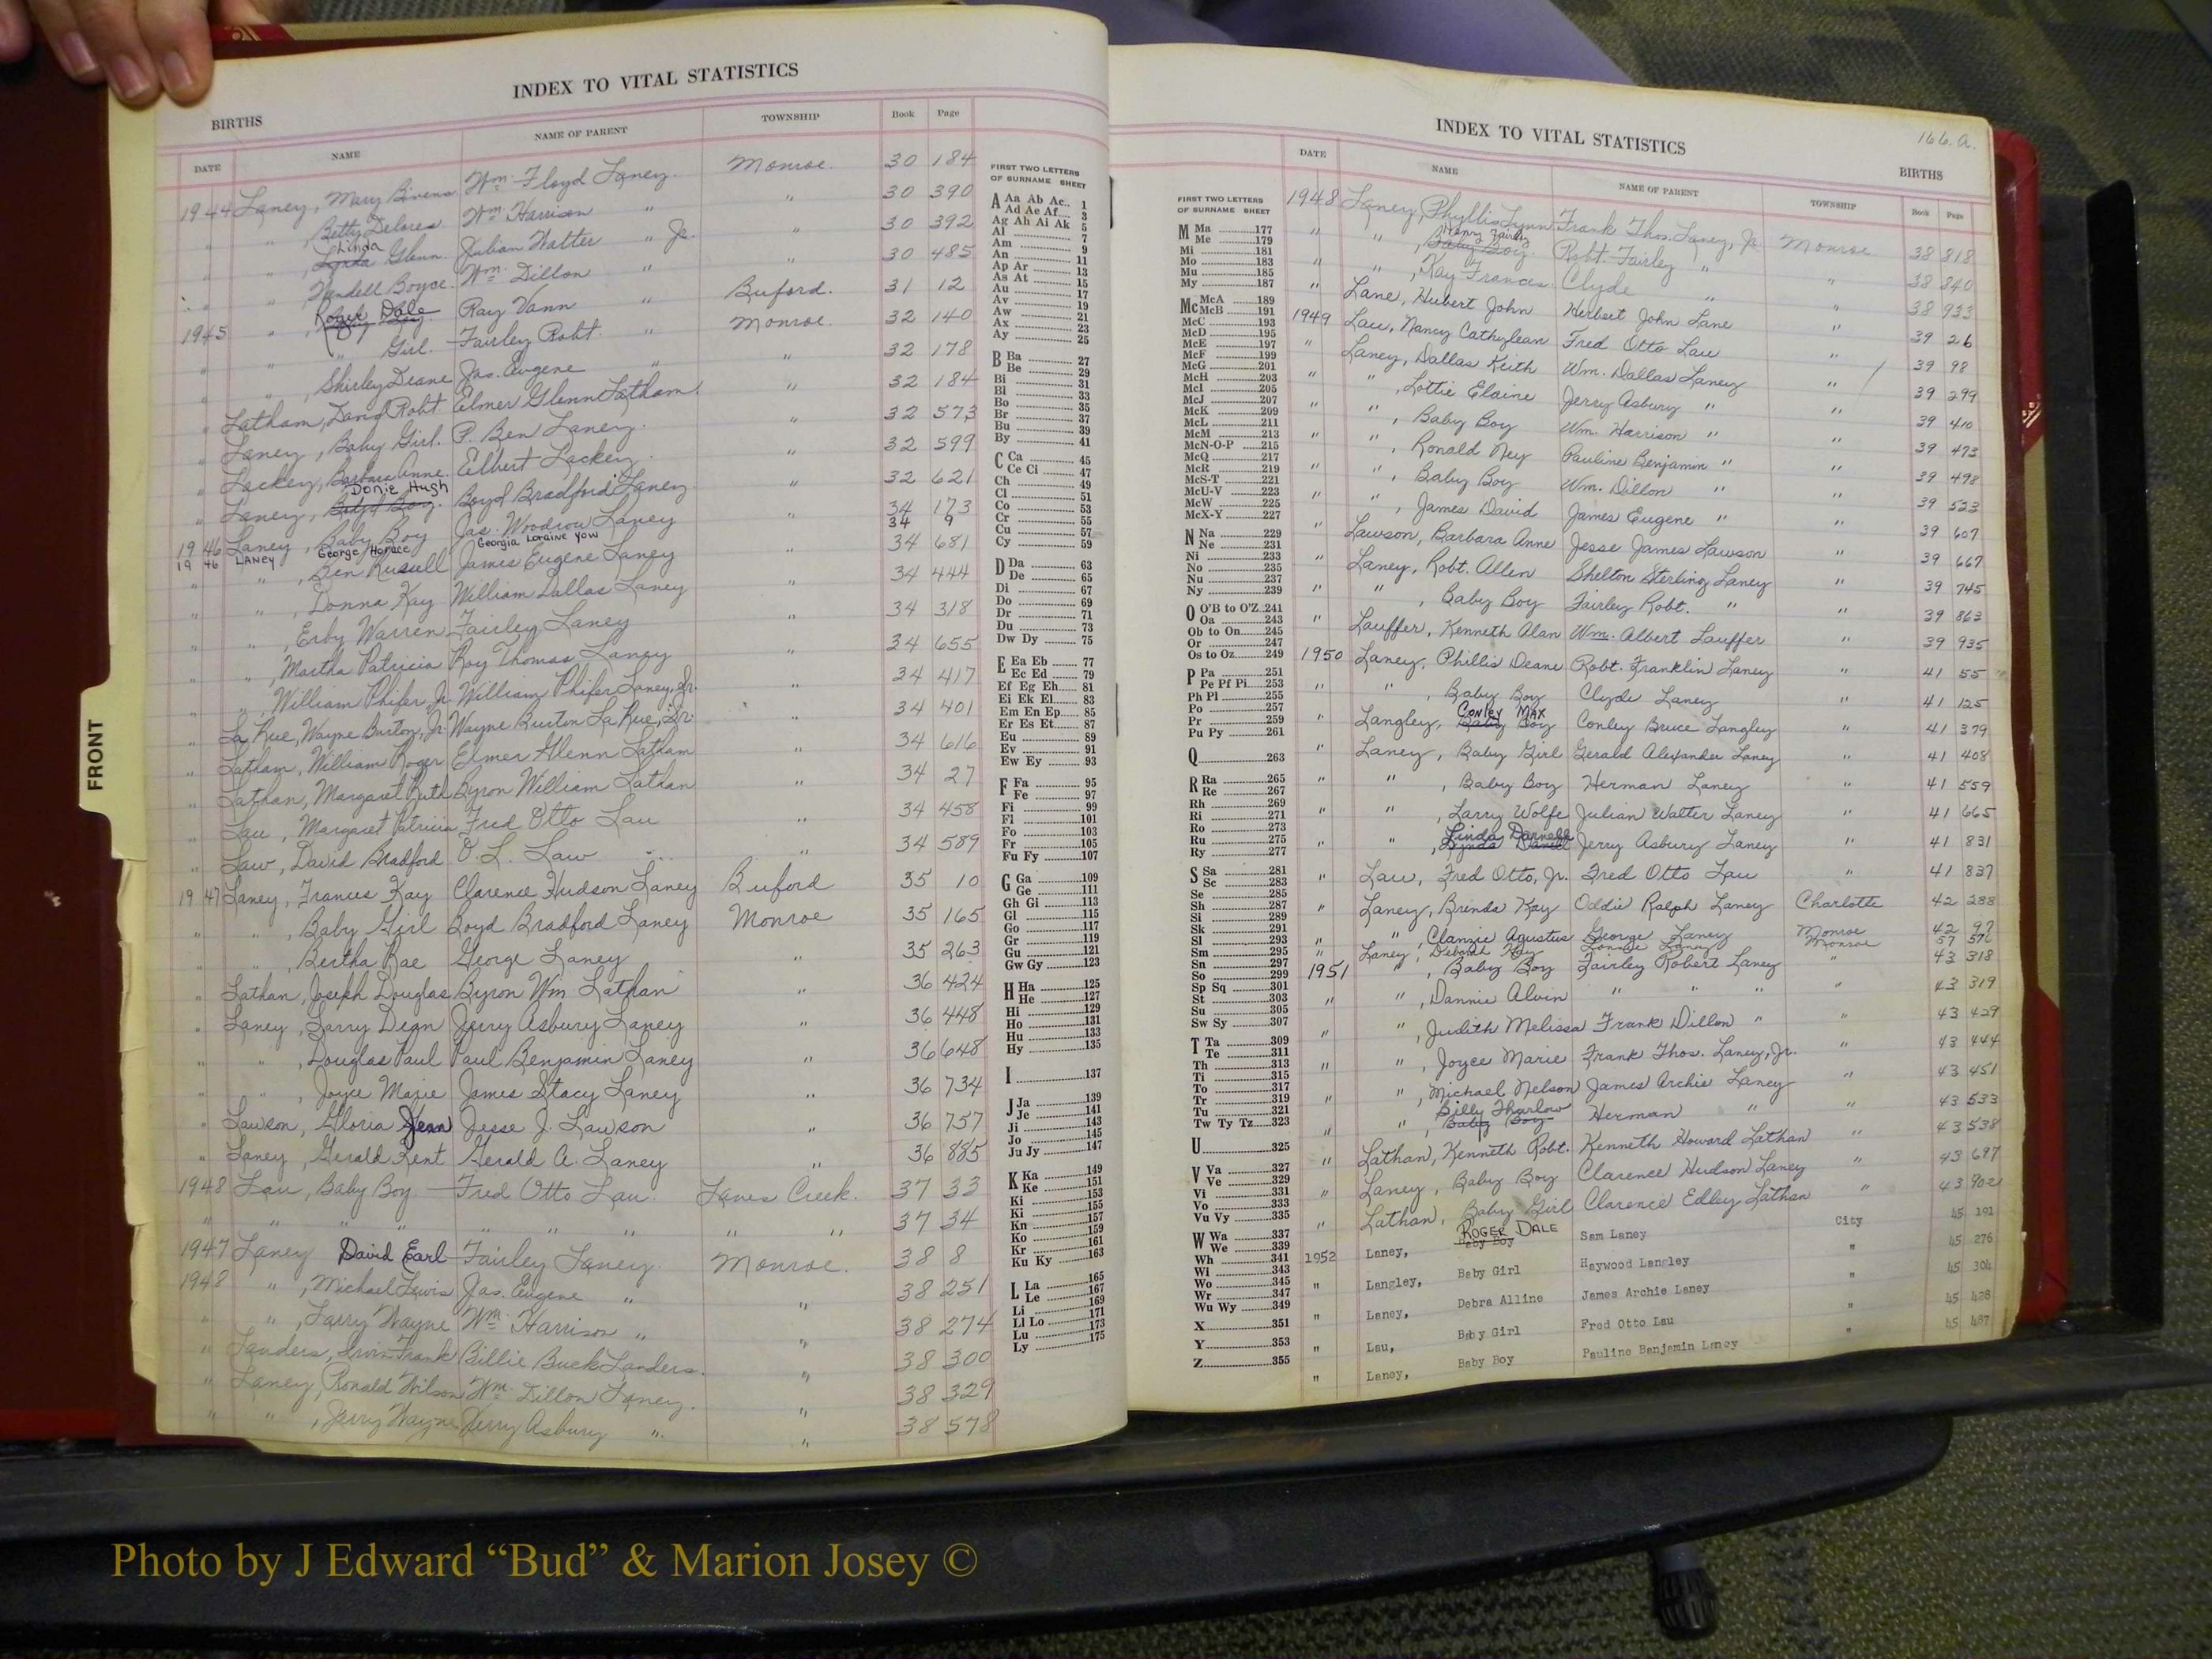 INDEX TO VITAL STATISTICS
BIRTHS
DATE NAME NAME OF PARENT TOWNSHIP Book Page
1944 Laney, Mary Bivens Wm. Floyd Laney. Monroe. 30 184
" " , Betty Delores Wm Harrison " " 30 390
" " , Linda Glenn Julian Walter " Jr. " 30 392
" " , Wendell Boyce. Wm. Dillon " " 30 485
1945 " , Roger Dale Ray Vann " Buford. 31 12
" " Girl. Fairley Robt. " Monroe. 32 140
" " , Shirley Deane Jas. Eugene " " 32 178
" Latham, David Robt Elmer Glenn Latham. " 32 184
" Laney, Baby Girl. P. Ben Laney. " 32 573
" Lackey, Barbara Anne. Elbert Lackey. " 32 599
" Laney, Donie Hugh Boyd Bradford Laney " 32 621
1946 Laney, Baby Boy Jas. Woodrow Laney " 34 173
1946 LANEY George Horace Georgia Loraine Yow 34 9
" " , Ben Russell James Eugene Laney " 34 681
" " , Donna Kay William Dallas Laney " 34 444
" " , Erby Warren Fairley Laney " 34 318
" " , Martha Patricia Roy Thomas Laney " 34 655
" " , William Phifer, Jr. William Phifer Laney, Sr. " 34 417
" La Rue, Wayne Burton, Jr. Wayne Burton La Rue, Sr. " 34 401
" Latham, William Roger Elmer Glenn Latham " 34 616
" Lathan, Margaret Ruth Byron William Lathan " 34 27
" Lau, Margaret Patricia Fred Otto Lau " 34 458
" Law, David Bradford O. L. Law " 34 589
1947 Laney, Frances Kay Clarence Hudson Laney Buford 35 10
" " , Baby Girl Boyd Bradford Laney Monroe 35 165
" " , Bertha Rae George Laney " 35 263
" Lathan, Joseph Douglas Byron Wm. Lathan " 36 424
" Laney, Larry Dean Jerry Asbury Laney " 36 448
" " , Douglas Paul Paul Benjamin Laney " 36 648
" " , Joyce Marie James Stacy Laney " 36 734
" Lawson, Gloria Jean Jesse J. Lawson " 36 757
" Laney, Gerald Kent Gerald A. Laney " 36 885
1948 Lau, Baby Boy Fred Otto Lau. Lanes Creek. 37 33
" " " " " " " " " 37 34
1947 Laney David Earl Fairley Laney. Monroe. 38 8
1948 " , Michael Lewis Jas. Eugene " " 38 251
" " , Larry Wayne Wm. Harrison " " 38 274
" Landers, Irvin Frank Billie Buck Landers. " 38 300
" Laney, Ronald Wilson Wm. Dillon Laney. " 38 329
" " , Jerry Wayne Jerry Asbury " " 38 578
FIRST TWO LETTERS
OF SURNAME SHEET
A Aa Ab Ac.. 1
Ad Ae Af.... 3
Ag Ah Ai Ak 5
Al 7
Am 9
An 11
Ap Ar 13
As At 15
Au 17
Av 19
Aw 21
Ax 23
Ay 25
B Ba 27
Be 29
Bi 31
Bl 33
Bo 35
Br 37
Bu 39
By 41
C Ca 45
Ce Ci 47
Ch 49
Cl 51
Co 53
Cr 55
Cu 57
Cy 59
D Da 63
De 65
Di 67
Do 69
Dr 71
Du 73
Dw Dy 75
E Ea Eb 77
Ec Ed 79
Ef Eg Eh 81
Ei Ek El 83
Em En Ep 85
Er Es Et 87
Eu 89
Ev 91
Ew Ey 93
F Fa 95
Fe 97
Fi 99
Fl 101
Fo 103
Fr 105
Fu Fy 107
G Ga 109
Ge 111
Gh Gi 113
Gl 115
Go 117
Gr 119
Gu 121
Gw Gy 123
H Ha 125
He 127
Hi 129
Ho 131
Hu 133
Hy 135
I 137
J Ja 139
Je 141
Ji 143
Jo 145
Ju Jy 147
K Ka 149
Ke 151
Ki 153
Ki 155
Kn 157
Ko 159
Kr 161
Ku Ky 163
L La 165
Le 167
Li 169
Ll Lo 171
Lu 173
Ly 175
FRONT
INDEX TO VITAL STATISTICS
166.a.
BIRTHS
DATE NAME NAME OF PARENT TOWNSHIP Book Page
FIRST TWO LETTERS
OF SURNAME SHEET
M Ma 177
Me 179
Mi 181
Mo 183
Mu 185
My 187
Mc McA 189
McB 191
McC 193
McD 195
McE 197
McF 199
McG 201
McH 203
McI 205
McJ 207
McK 209
McL 211
McM 213
McN-O-P 215
McQ 217
McR 219
McS-T 221
McU-V 223
McW 225
McX-Y 227
N Na 229
Ne 231
Ni 233
No 235
Nu 237
Ny 239
O O'B to O'Z 241
Oa 243
Ob to On 245
Or 247
Os to Oz 249
P Pa 251
Pe Pf Pi 253
Ph Pl 255
Po 257
Pr 259
Pu Py 261
Q 263
R Ra 265
Re 267
Rh 269
Ri 271
Ro 273
Ru 275
Ry 277
S Sa 281
Sc 283
Se 285
Sh 287
Si 289
Sk 291
Sl 293
Sm 295
Sn 297
So 299
Sp Sq 301
St 303
Su 305
Sw Sy 307
T Ta 309
Te 311
Th 313
Ti 315
To 317
Tr 319
Tu 321
Tw Ty Tz 323
U 325
V Va 327
Ve 329
Vi 331
Vo 333
Vu Vy 335
W Wa 337
We 339
Wh 341
Wi 343
Wo 345
Wr 347
Wu Wy 349
X 351
Y 353
Z 355
1948 Laney, Phyllis Lynn Frank Thos. Laney, Jr. Monroe 38 818
" " , Henry Fairly Robt. Fairley " " 38 840
" " , Kay Frances Clyde " " 38 933
" Lane, Hubert John Herbert John Lane " 39 26
1949 Lau, Nancy Cathylean Fred Otto Lau " 39 98
" Laney, Dallas Keith Wm. Dallas Laney " 39 299
" " , Lottie Elaine Jerry Asbury " " 39 410
" " , Baby Boy Wm. Harrison " " 39 473
" " , Ronald Ney Pauline Benjamin " " 39 498
" " , Baby Boy Wm. Dillon " " 39 523
" " , James David James Eugene " " 39 607
" Lawson, Barbara Anne Jesse James Lawson " 39 667
" Laney, Robt. Allen Shelton Sterling Laney " 39 745
" " , Baby Boy Fairley Robt. " " 39 863
" Lauffer, Kenneth Alan Wm. Albert Lauffer " 39 935
1950 Laney, Phillis Deane Robt. Franklin Laney " 41 55
" " , Baby Boy Clyde Laney " 41 125
" Langley, Conley Max Conley Bruce Langley " 41 379
" Laney, Baby Girl Gerald Alexander Laney " 41 408
" " , Baby Boy Herman Laney " 41 559
" " , Larry Wolfe Julian Walter Laney " 41 665
" " , Linda Darnell Jerry Asbury Laney " 41 831
" Lau, Fred Otto, Jr. Fred Otto Lau " 41 837
" Laney, Brenda Kay Oddie Ralph Laney Charlotte 42 288
" " , Clanzie Agustus George Laney Monroe 42 97
" Laney, Deborah Kay Lonnie Laney Monroe 57 576
1951 " , Baby Boy Fairley Robert Laney " 43 318
" " , Dannie Alvin " " " " 43 319
" " , Judith Melissa Frank Dillon " " 43 429
" " , Joyce Marie Frank Thos. Laney, Jr. " 43 444
" " , Michael Nelson James Archie Laney " 43 451
" " , Billy Tharlow Herman " " 43 533
" Lathan, Kenneth Robt. Kenneth Howard Lathan " 43 538
" Laney, Baby Boy Clarence Hudson Laney " 43 697
" Lathan, Baby Girl Clarence Edley Lathan " 43 902
1952 Laney, ROGER DALE Sam Laney City 45 191
" Langley, Baby Girl Haywood Langley " 45 276
" Laney, Debra Alline James Archie Laney " 45 304
" Lau, Baby Girl Fred Otto Lau " 45 428
" Laney, Baby Boy Pauline Benjamin Laney " 45 487
Photo by J Edward “Bud” & Marion Josey ©